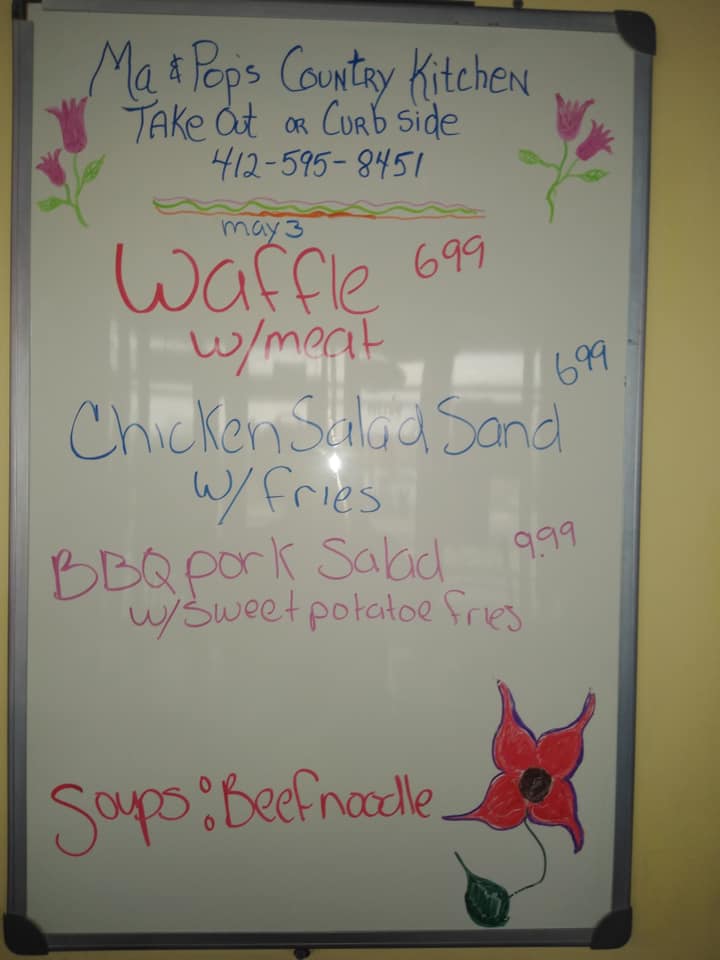 Ma & Pop's Country Kitchen
Take Out or Curb side
412-595-8451
may 3
Waffle 699
w/meat
699
Chicken Salad Sand
w/fries
BBQ pork Salad 9.99
w/sweet potatoe fries
Soups: Beef noodle